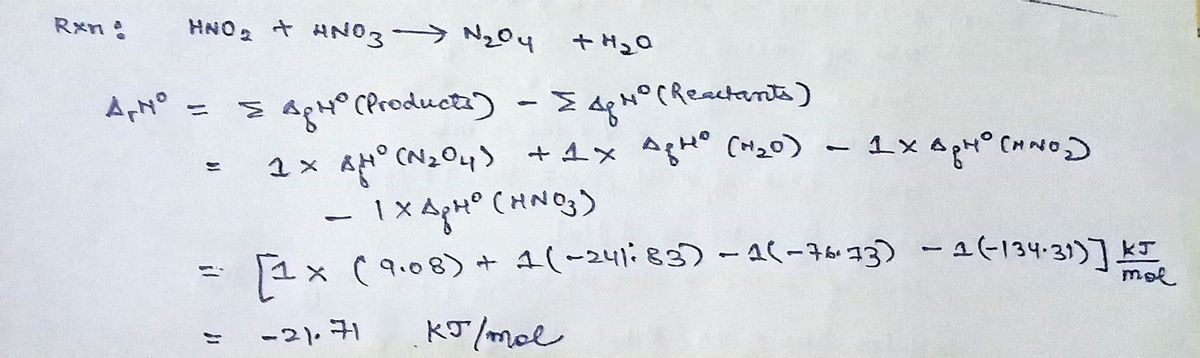 Rxn : HNO2 + HNO3 → N2O4 + H2O
ΔrH° = Σ ΔfH° (Products) - Σ ΔfH° (Reactants)
= 1 x ΔfH° (N2O4) + 1 x ΔfH° (H2O) - 1 x ΔfH° (HNO2)
- 1 x ΔfH° (HNO3)
= [1 x (9.08) + 1(-241.83) - 1(-76.73) - 1(-134.31)] KJ/mol
= -21.71 KJ/mol